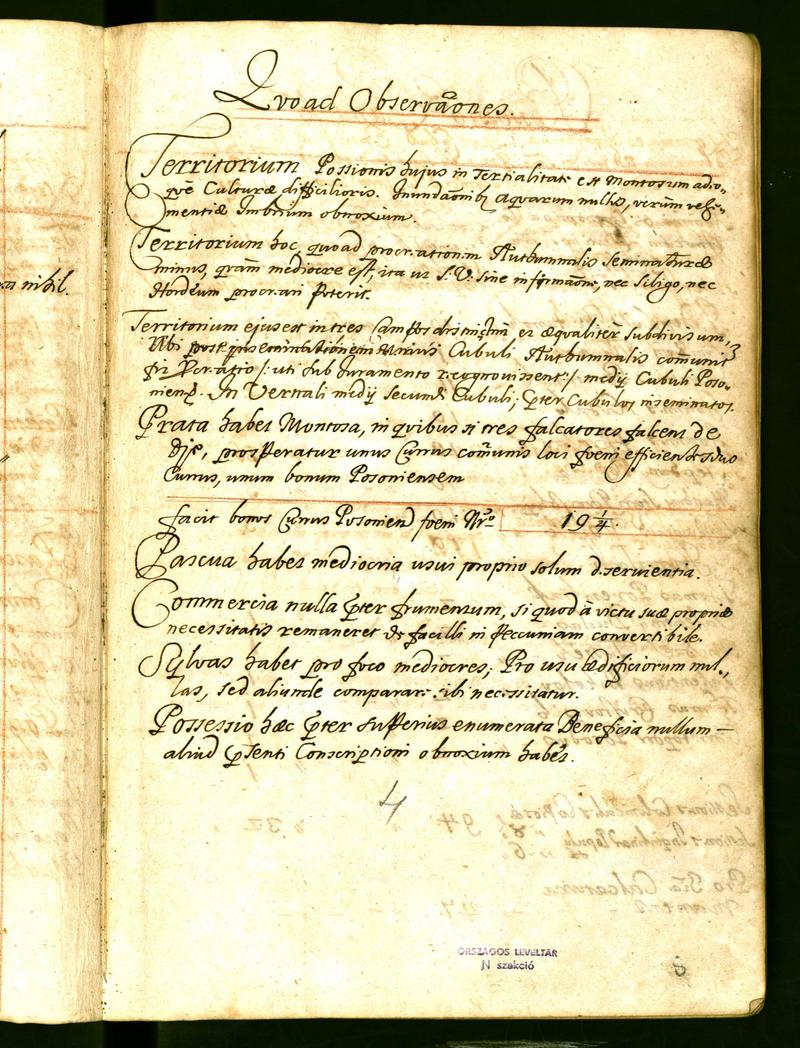 Quoad Observãones.
Territorium Possionis hujus in Tertialitate est Montosum adeo-
que Culturæ difficilioris. Inundãonibq Aquarum nullis, verùm vehe-
mentiæ Imbrium obnoxium.
Territorium hoc, quoad procreationem Authumnalis seminaturæ
minus, quàm mediocre est, ita ut S. V. sine infimãone, nec Siligo, nec
Hordeum procreari poterit.
Territorium ejus est in tres Campos distinctum et æqualiter subdivisum,
Ubi post inseminationem Unius Cubuli Authumnalis comuniter
fit Peratio /: uti sub Juramento recognovissent :/ medij Cubuli Poso-
niens. In Vernali medij secundi Cubuli; pter Cubulos inseminatos.
Prata habet Montosa, in quibus si tres falcatores falcent de
Die, prosperatur unus Currus comunis loci foeni efficientes duo
Currus, unum bonum Posoniensem
facit bonos Currus Posoniens foeni Nro 19 1/4.
Pascua habet mediocria usui proprio solum deservientia.
Commercia nulla pter frumentum, si quod à victu suæ propriæ
necessitatis remaneret de facili in Peccuniam convertibile.
Sylvas habet pro foco mediocres; Pro usu ædificiorum nul-
las, sed aliunde comparare sibi necessitatur.
Possessio hæc pter superius enumerata Beneficia nullum
aliud psenti Conscriptioni obnoxium habet.
4
ORSZÁGOS LEVÉLTÁR
N szekció
nihil.